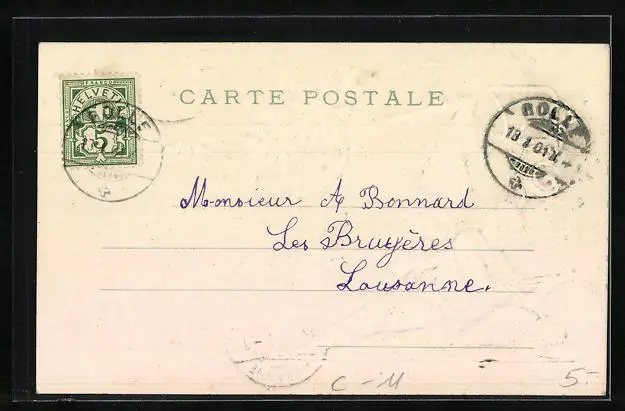 FRANCO
HELVETIA
ROLLE
5
CARTE POSTALE
ROLLE
Monsieur A Bonnard
Les Bruyères
Lausanne.
C - M
5.-